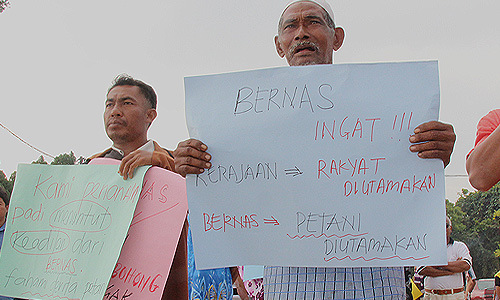 BERNAS
INGAT !!!
KERAJAAN ⇒ RAKYAT
DIUTAMAKAN
BERNAS ⇒ PETANI
DIUTAMAKAN
Kami
padi menuntut
Keadilan dari
BERNAS
faham
AS
OHONG
AK